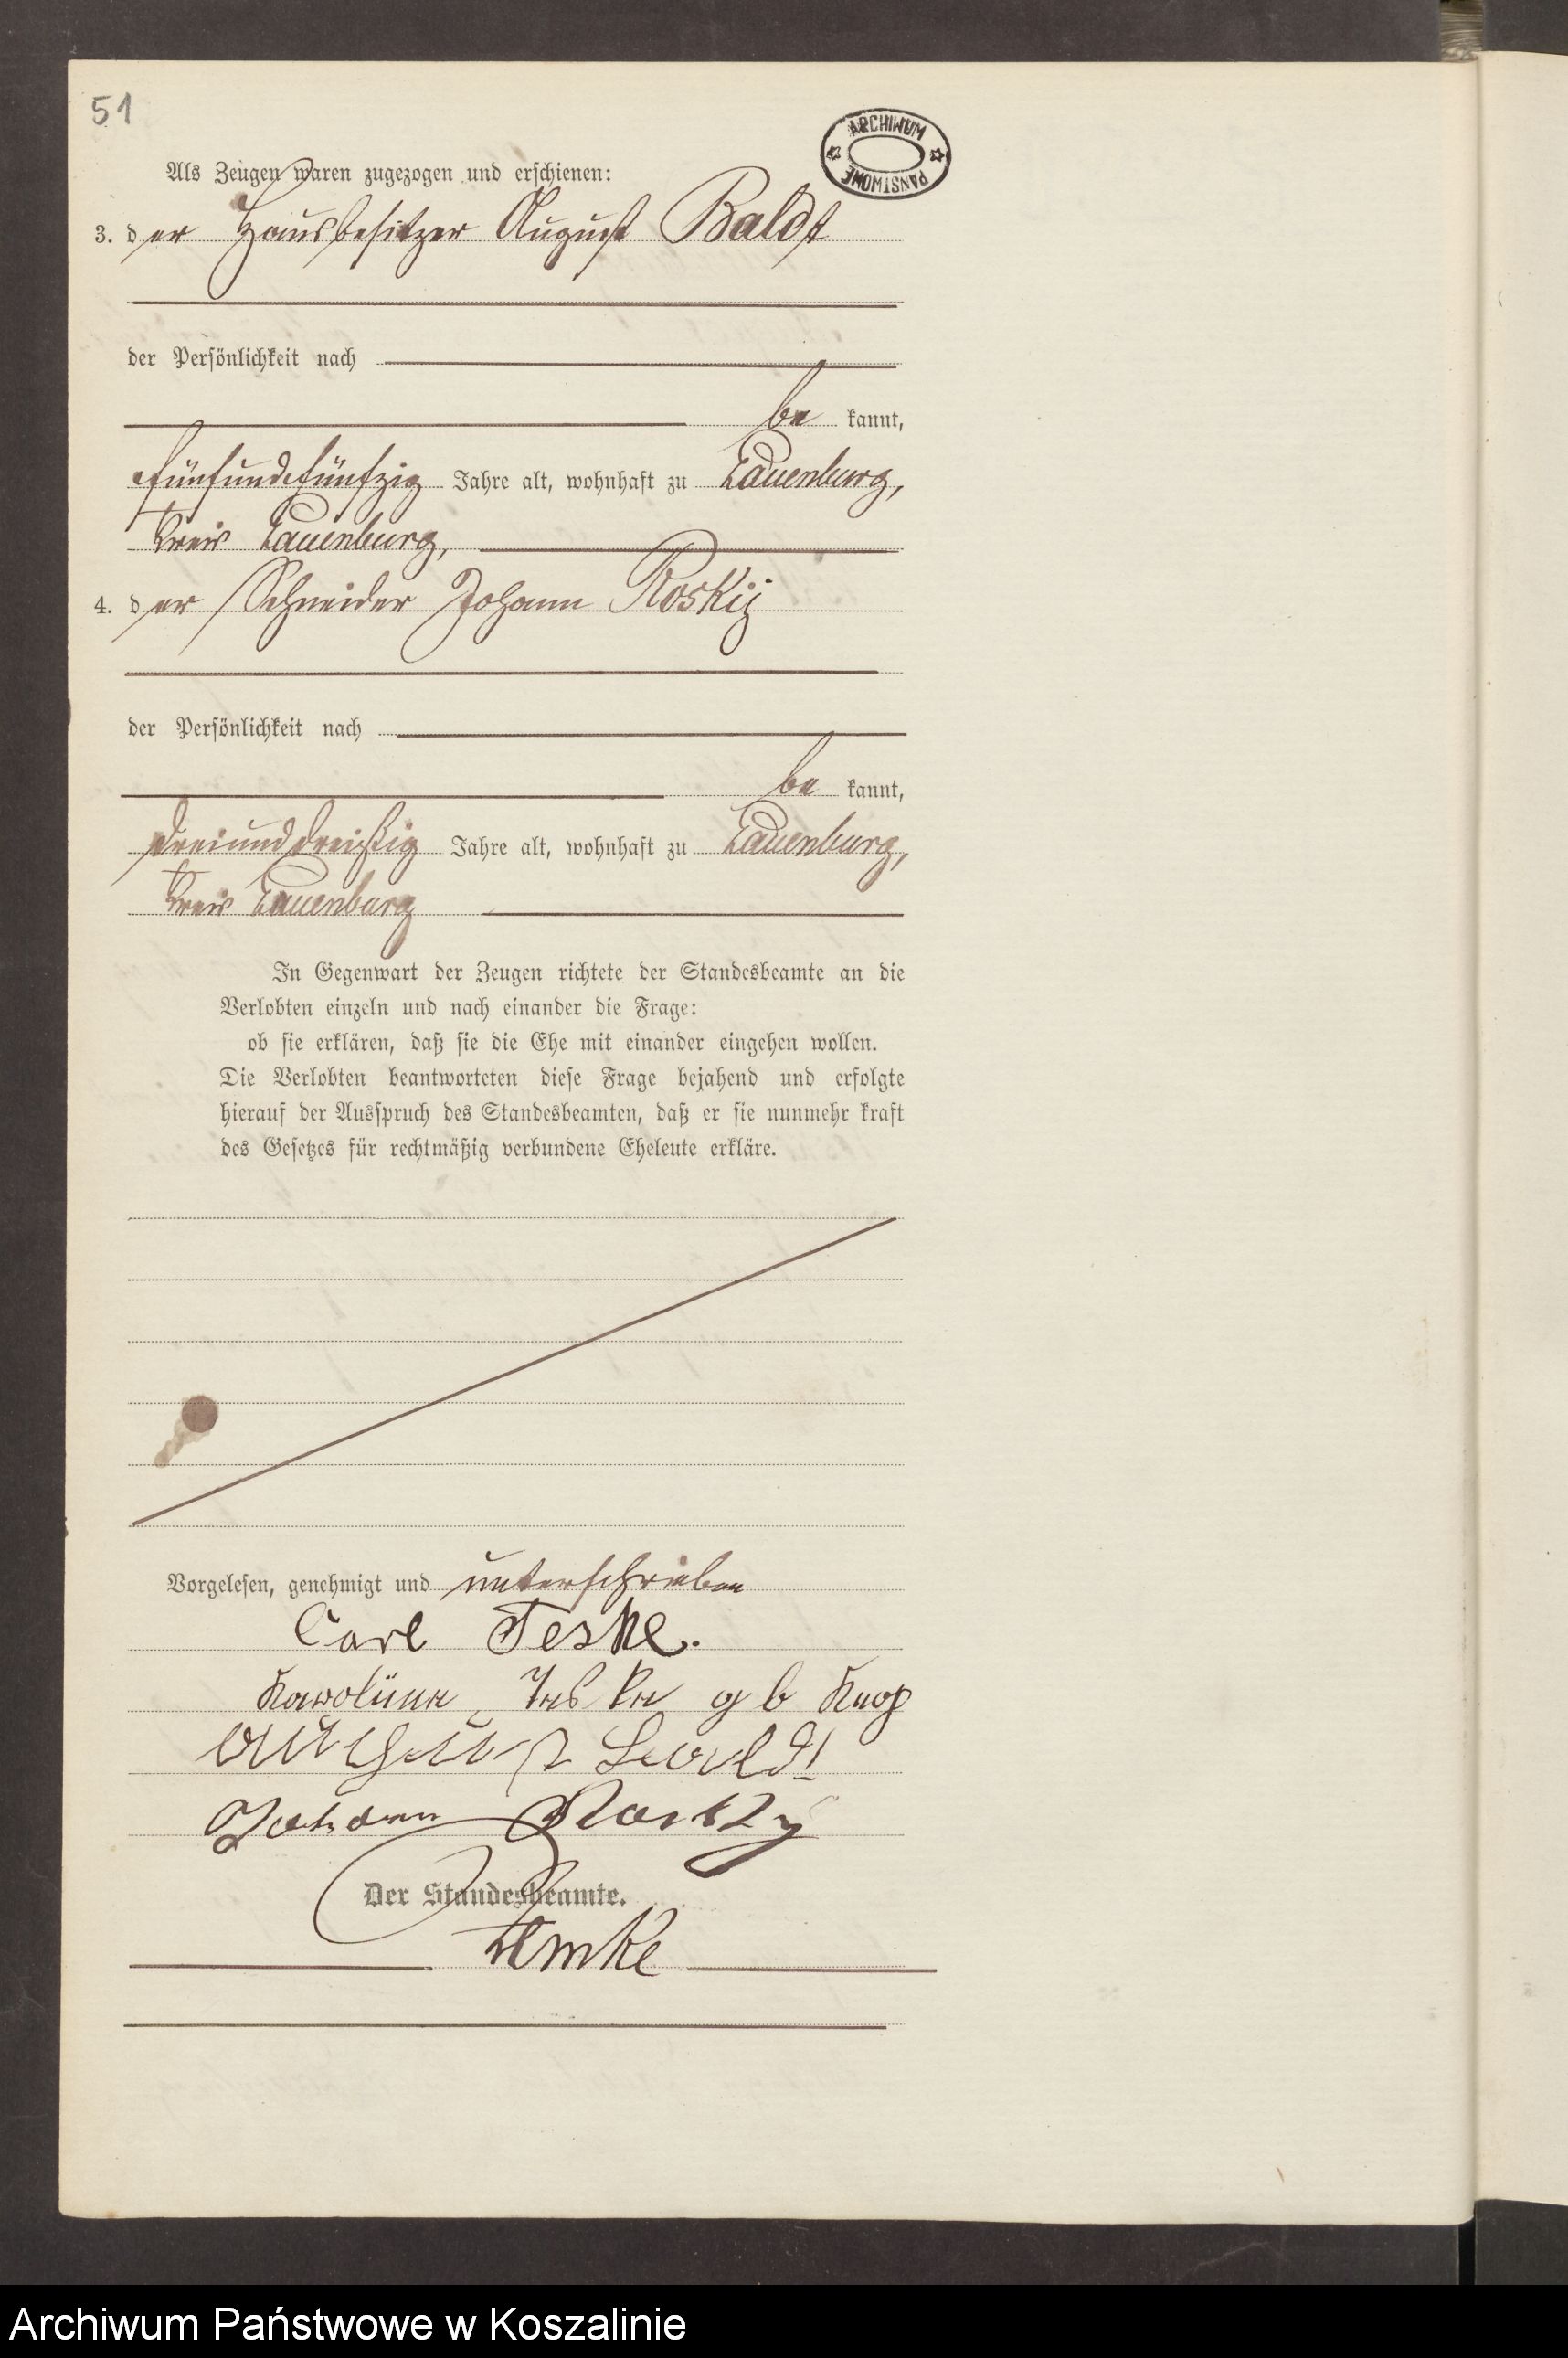 51
ARCHIWUM PAŃSTWOWE
Als Zeugen waren zugezogen und erschienen:
3. der Hausbesitzer August Baldt
der Persönlichkeit nach
be kannt,
fünfundfünfzig Jahre alt, wohnhaft zu Lauenburg,
Kreis Lauenburg,
4. der Schneider Johann Roskij
der Persönlichkeit nach
be kannt,
dreiunddreißig Jahre alt, wohnhaft zu Lauenburg,
Kreis Lauenburg
In Gegenwart der Zeugen richtete der Standesbeamte an die
Verlobten einzeln und nach einander die Frage:
ob sie erklären, daß sie die Ehe mit einander eingehen wollen.
Die Verlobten beantworteten diese Frage bejahend und erfolgte
hierauf der Ausspruch des Standesbeamten, daß er sie nunmehr kraft
des Gesetzes für rechtmäßig verbundene Eheleute erkläre.
Vorgelesen, genehmigt und unterschrieben
Carl Teske.
Karoline Teske gb Knop
August
Johann
Der Standesbeamte.
Archiwum Państwowe w Koszalinie